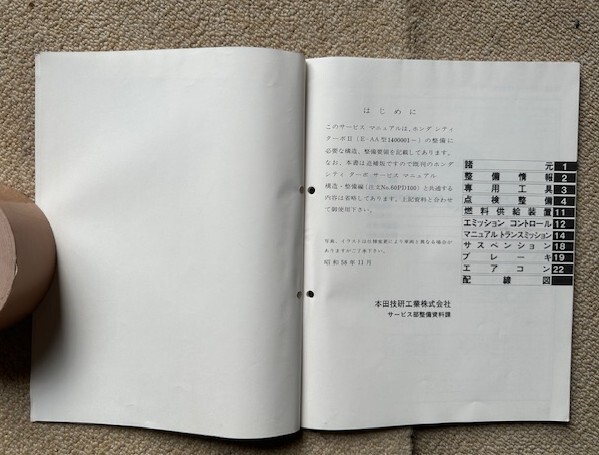 はじめに
このサービス マニュアルは、ホンダ シティ
ターボⅡ(E-AA型1400001〜)の整備に
必要な構造、整備要領を記載してあります。
なお、本書は追補版ですので既刊のホンダ
シティ ターボ サービス マニュアル
構造・整備編(注文No.60PD100)と共通する
内容は省略してあります。上記資料と合わせ
て御使用下さい。
写真、イラストは仕様変更により車両と異なる場合が
ありますのでご了承下さい。
昭和58年11月
本田技研工業株式会社
サービス部整備資料課
諸元 1
整備情報 2
専用工具 3
点検整備 4
燃料供給装置 11
エミッション コントロール 12
マニュアル トランスミッション 14
サスペンション 18
ブレーキ 19
エアコン 22
配線図